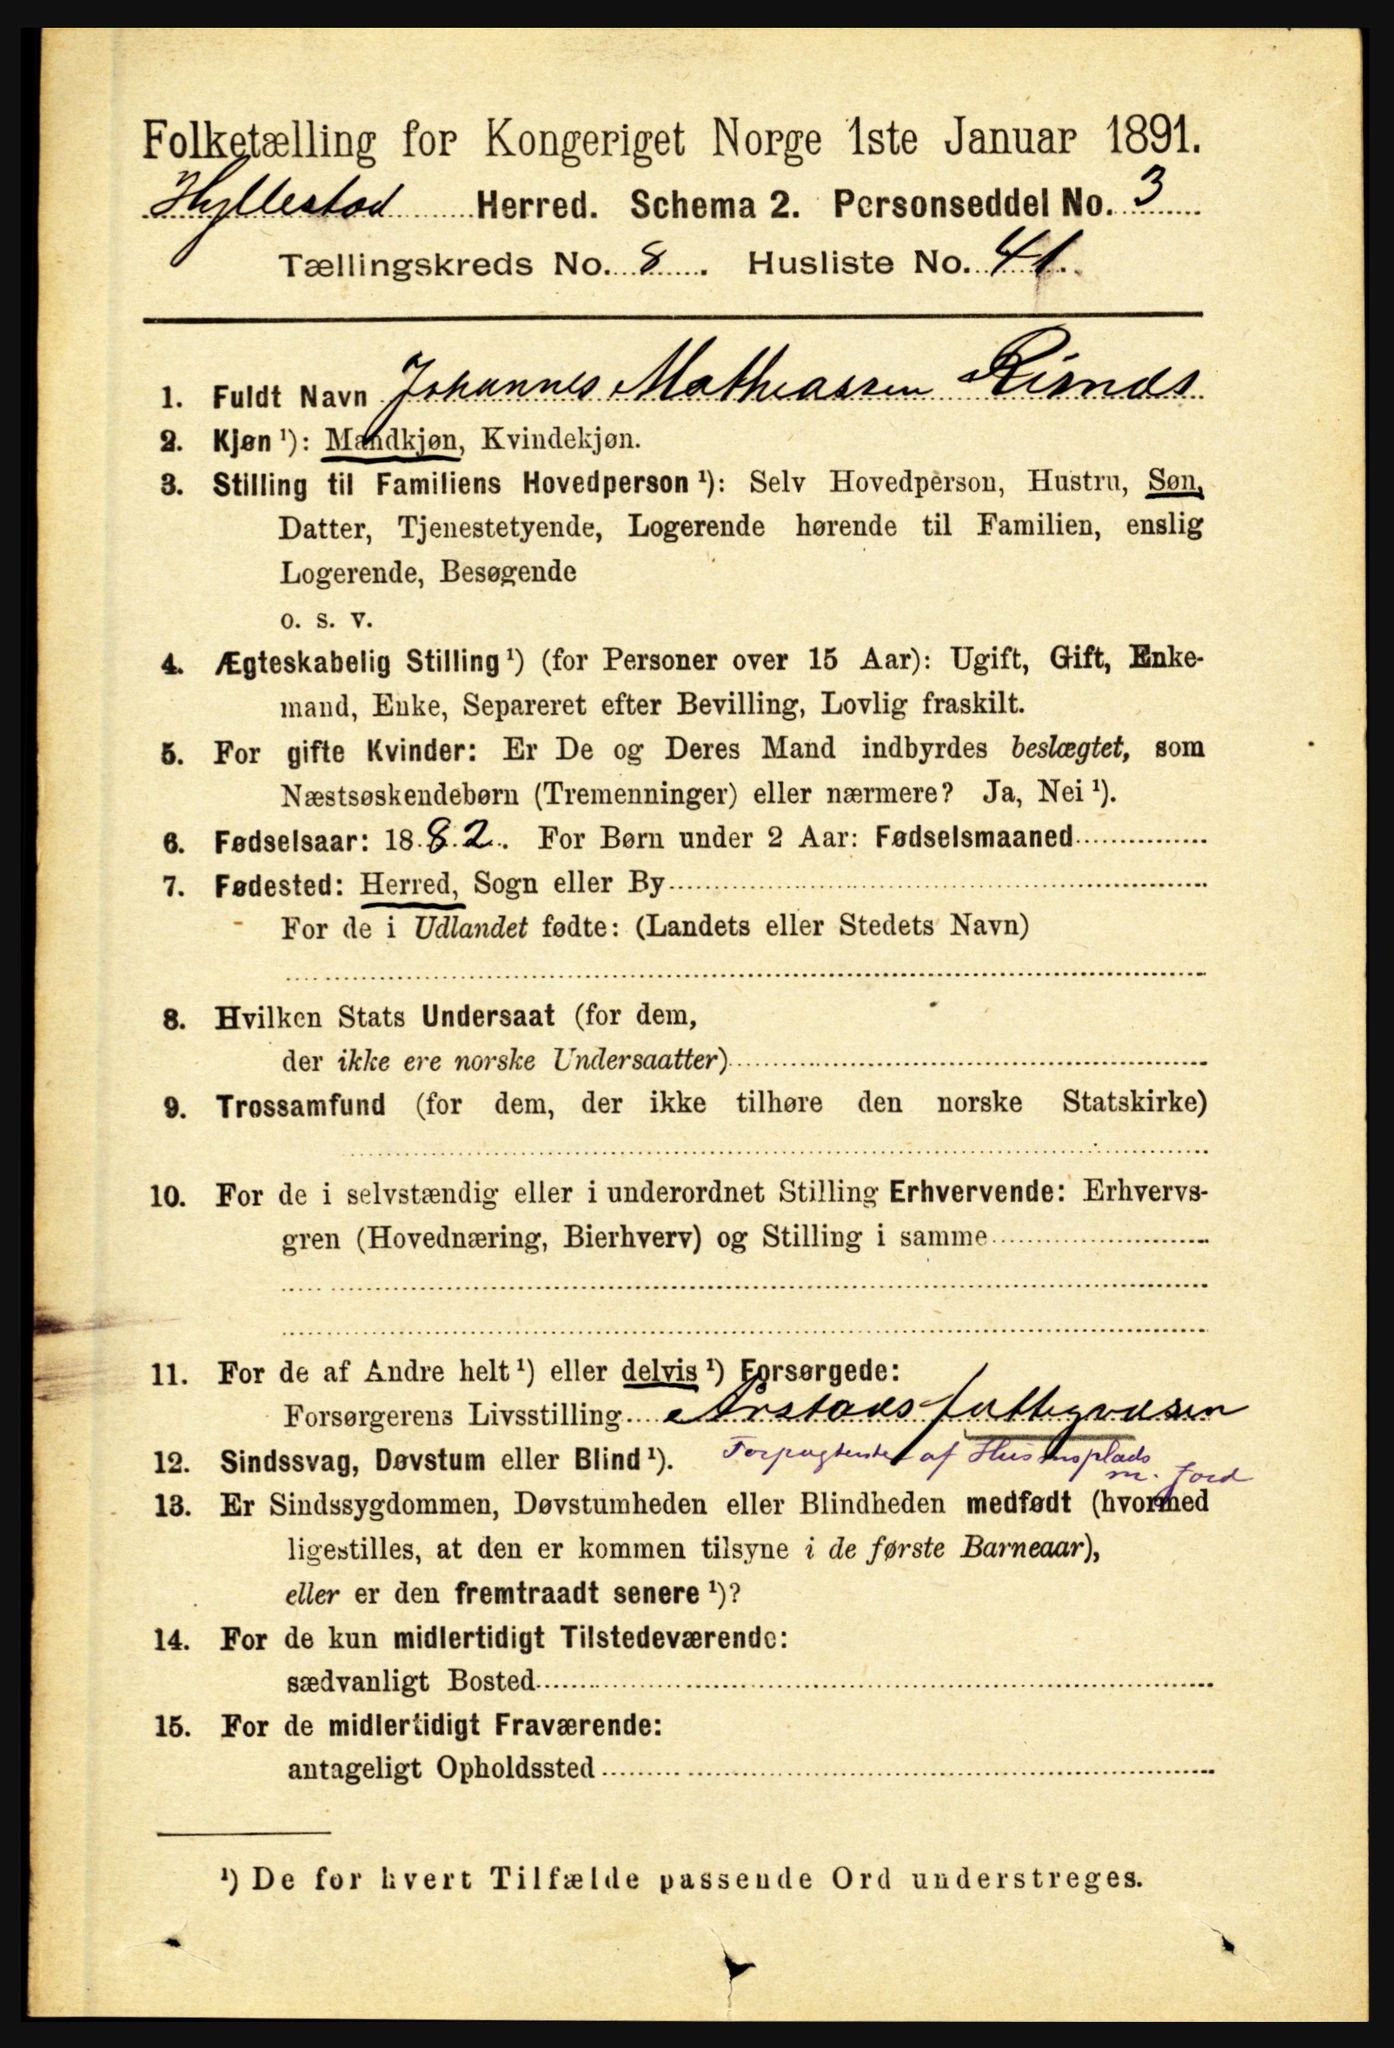 Folketælling for Kongeriget Norge 1ste Januar 1891.
Hyllestad Herred. Schema 2. Personseddel No. 3
Tællingskreds No. 8. Husliste No. 41.
1. Fuldt Navn Johannes Mathiassen
2. Kjøn ¹): Mandkjøn, Kvindekjøn.
3. Stilling til Familiens Hovedperson ¹): Selv Hovedperson, Hustru, Søn,
Datter, Tjenestetyende, Logerende hørende til Familien, enslig
Logerende, Besøgende
o. s. v.
4. Ægteskabelig Stilling ¹) (for Personer over 15 Aar): Ugift, Gift, Enke-
mand, Enke, Separeret efter Bevilling, Lovlig fraskilt.
5. For gifte Kvinder: Er De og Deres Mand indbyrdes beslægtet, som
Næstsøskendebørn (Tremenninger) eller nærmere? Ja, Nei ¹).
6. Fødselsaar: 1882. For Børn under 2 Aar: Fødselsmaaned
7. Fødested: Herred, Sogn eller By
For de i Udlandet fødte: (Landets eller Stedets Navn)
8. Hvilken Stats Undersaat (for dem,
der ikke ere norske Undersaatter)
9. Trossamfund (for dem, der ikke tilhøre den norske Statskirke)
10. For de i selvstændig eller i underordnet Stilling Erhvervende: Erhvervs-
gren (Hovednæring, Bierhverv) og Stilling i samme
11. For de af Andre helt ¹) eller delvis ¹) Forsørgede:
Forsørgerens Livsstilling fattigvæsen
12. Sindssvag, Døvstum eller Blind ¹). Forpagter af Husmandsplads
m. Jord
13. Er Sindssygdommen, Døvstumheden eller Blindheden medfødt (hvormed
ligestilles, at den er kommen tilsyne i de første Barneaar),
eller er den fremtraadt senere ¹)?
14. For de kun midlertidigt Tilstedeværende:
sædvanligt Bosted
15. For de midlertidigt Fraværende:
antageligt Opholdssted
¹) De for hvert Tilfælde passende Ord understreges.